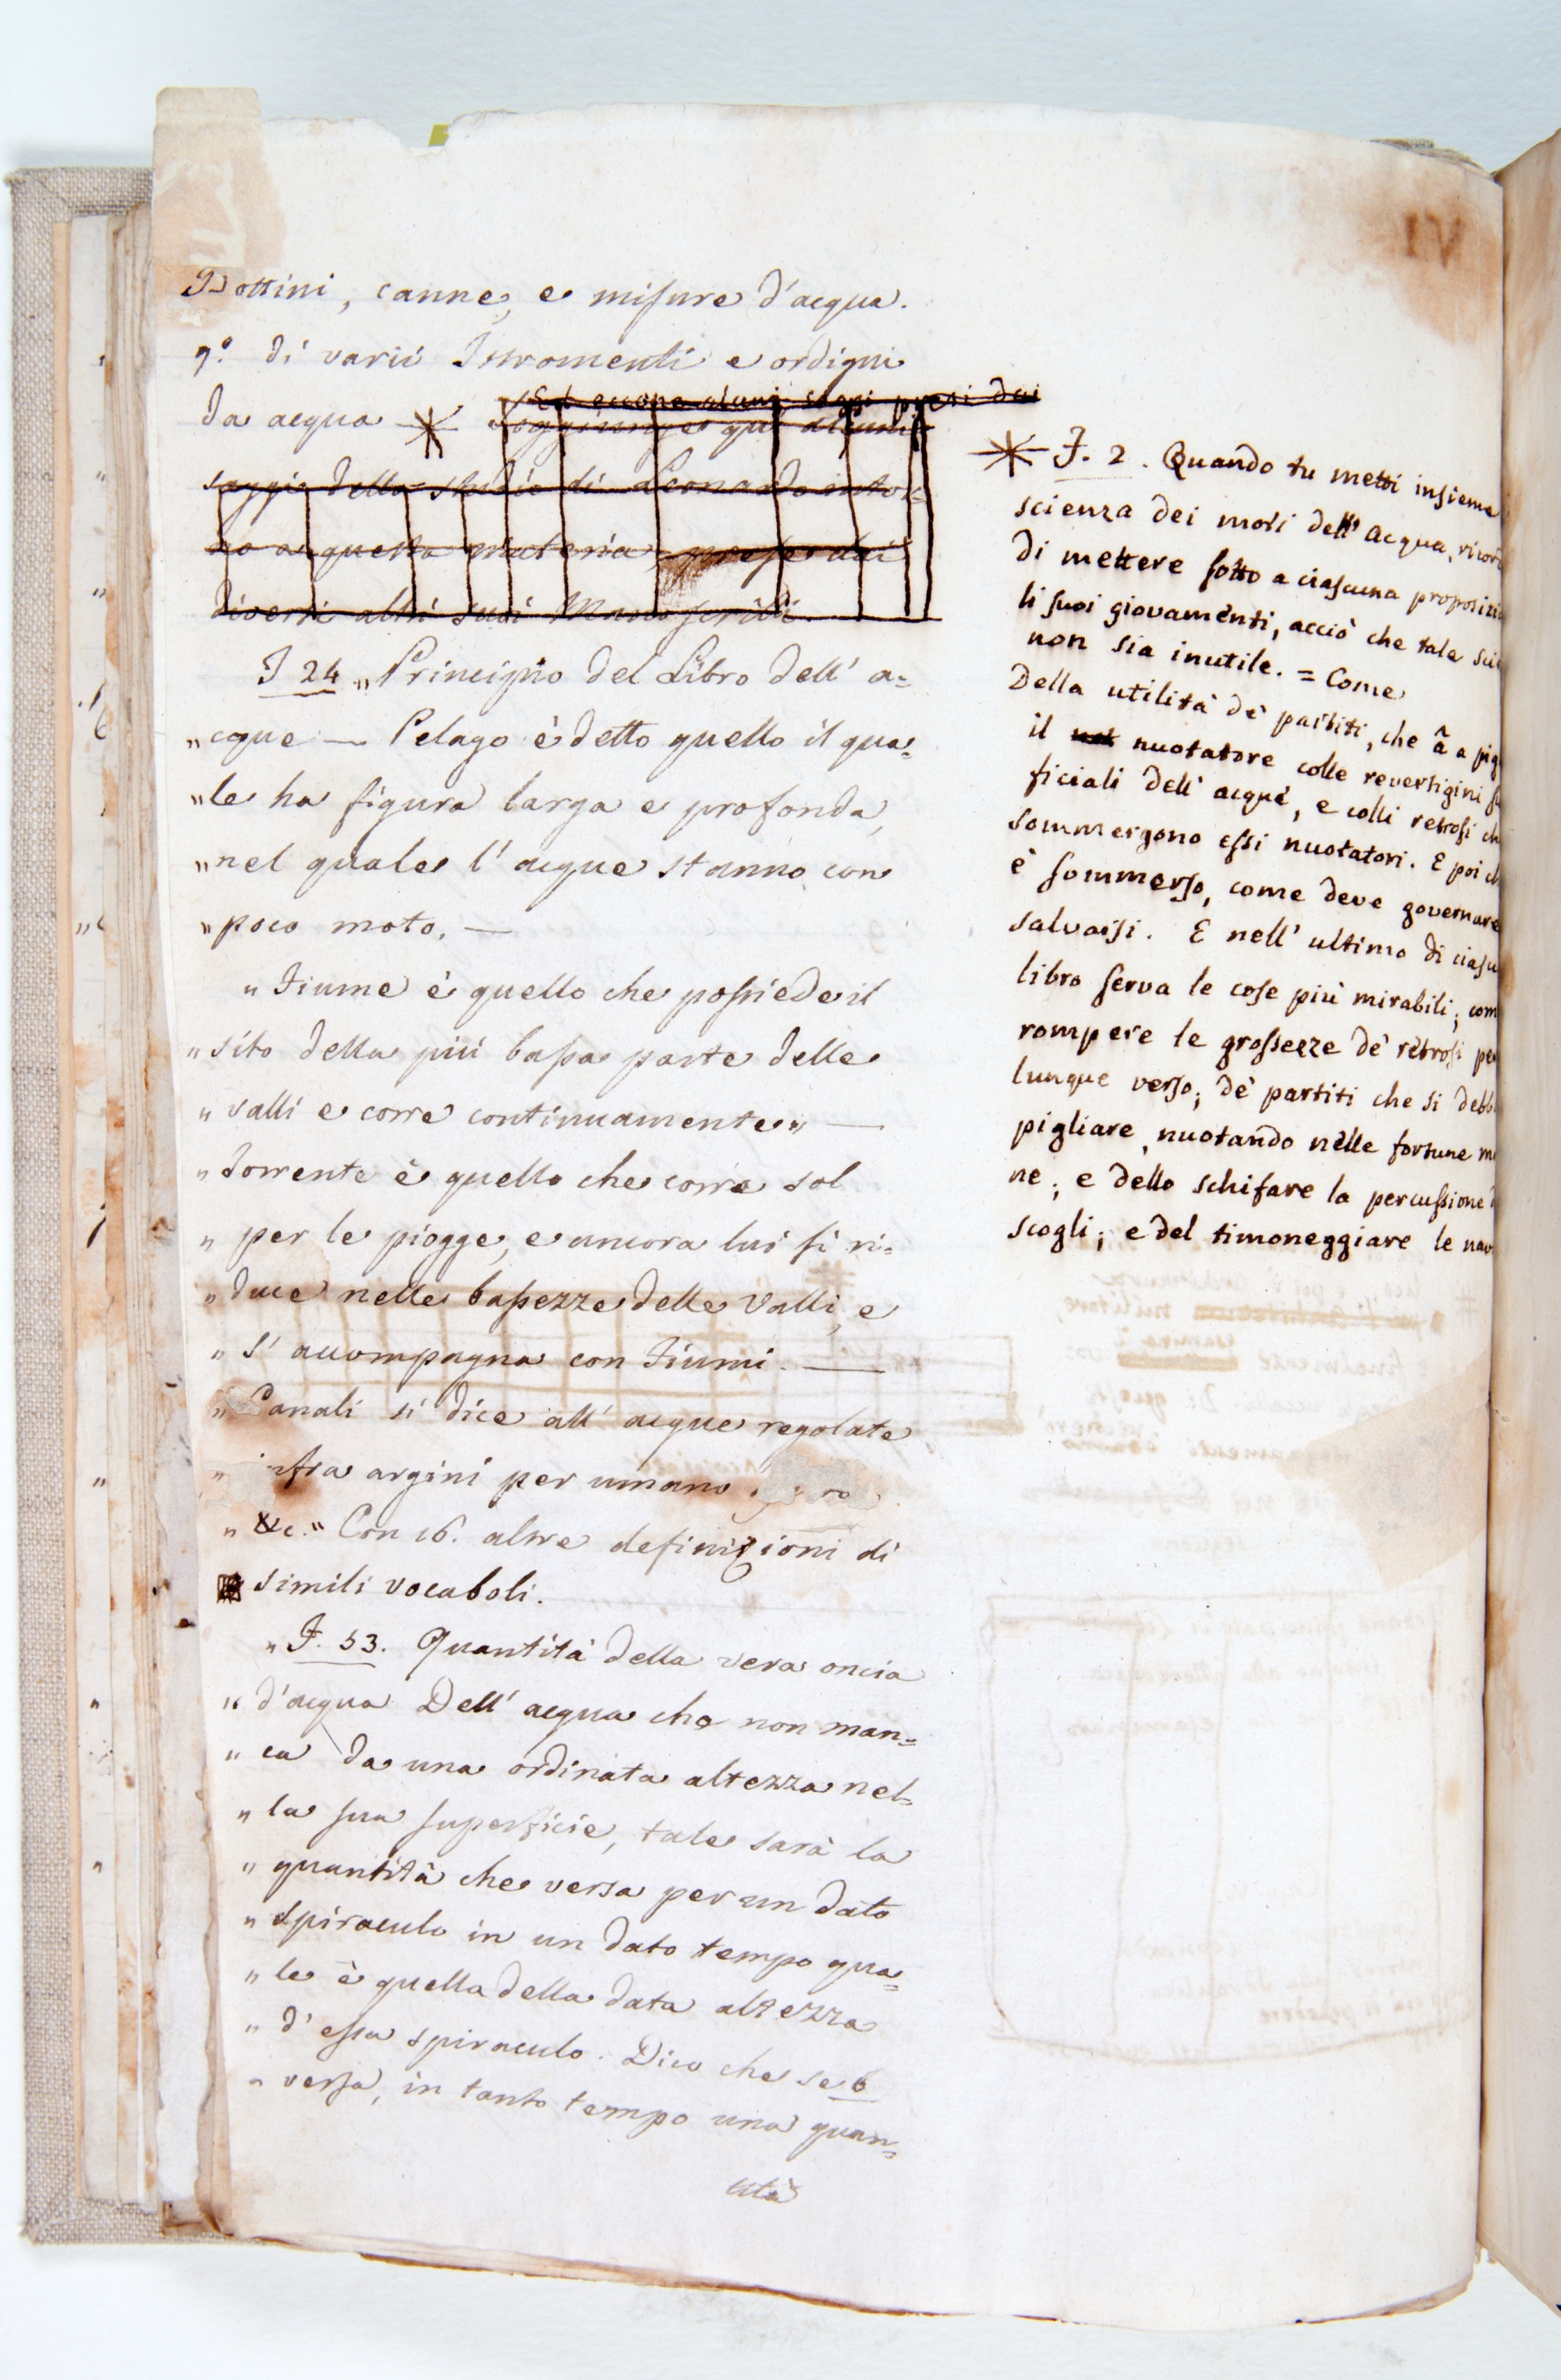 Bottini, canne, e misure d'acqua.
9.º di varii Istromenti e ordigni
da acqua * Soggiungo quì alcuni
Ed eccone alcuni saggi presi dai
saggi dello studio di Leonardo intor=
no a questa materia, prese dai
diversi altri suoi Manoscritti.
F 24 „ Principio del Libro dell' a=
„ cque — Pelago è detto quello il qua=
„ le ha figura larga e profonda,
„ nel quale l'acque stanno con
„ poco moto. —
„ Fiume è quello che possiede il
„ sito della più bassa parte delle
„ valli e corre continuamente „ —
„ Torrente è quello che corre sol
„ per le piogge, e ancora lui si ri=
„ duce nelle bassezze delle Valli, e
„ s' accompagna con Fiumi. —
„ Canali si dice all' acque regolate
„ infra argini per umano
„ &c. „ Con 16. altre definizioni di
simili vocaboli.
„ F. 53. Quantità della vera oncia
„ d'acqua Dell' acqua che non man=
„ ca da una ordinata altezza nel=
„ la sua superficie, tale sarà la
„ quantità che versa per un dato
„ spiraculo in un dato tempo qua=
„ le è quella della data altezza
„ d' esso spiraculo. Dico che se b
„ versa, in tanto tempo una quan=
tità
* F. 2. Quando tu metti insieme
scienza dei moti dell' acqua, ricor
di mettere sotto a ciascuna proposizi
li suoi giovamenti, acciò che tale sci
non sia inutile. = Come
Della utilità de' partiti, che â a pig
il nuotatore colle revertigini
ficiali dell' acque, e colli retrosi ch
sommergono essi nuotatori. E poi ch
è sommerso, come deve governare
salvarsi. E nell' ultimo di ciascu
libro serva le cose più mirabili; com
rompere le grossezze de' retrosi per
lunque verso; de' partiti che si debb
pigliare, nuotando nelle fortune m
ne; e dello schifare la percussione d
scogli; e del timoneggiare le nav